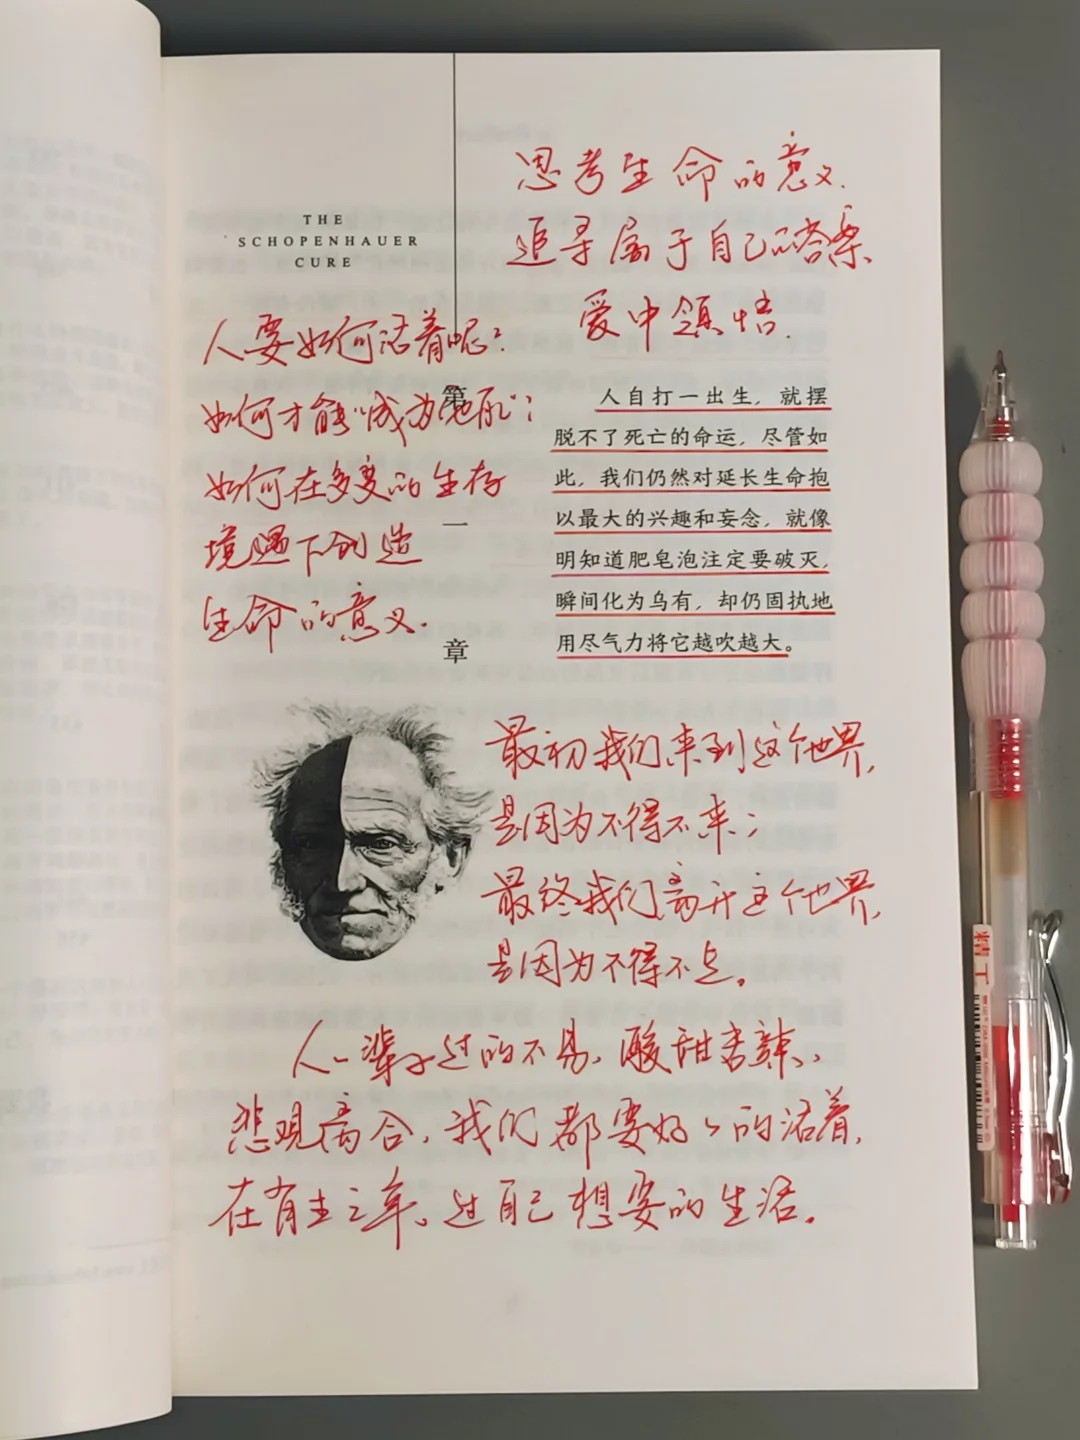 THE
SCHOPENHAUER
CURE
思考生命的意义.
追寻属于自己的答案.
爱中领悟.
人要如何活着呢?
如何才能“成为自取”;
如何在多变的生存
境遇下创造
生命的意义.
第
一
章
人自打一出生，就摆
脱不了死亡的命运，尽管如
此，我们仍然对延长生命抱
以最大的兴趣和妄念，就像
明知道肥皂泡注定要破灭，
瞬间化为乌有，却仍固执地
用尽气力将它越吹越大。
最初我们来到这个世界,
是因为不得不来;
最终我们离开这个世界,
是因为不得不走。
人一辈子过的不易、酸甜苦辣、
悲观离合,我们都要好好的活着,
在有生之年。过自己想要的生活。
精工